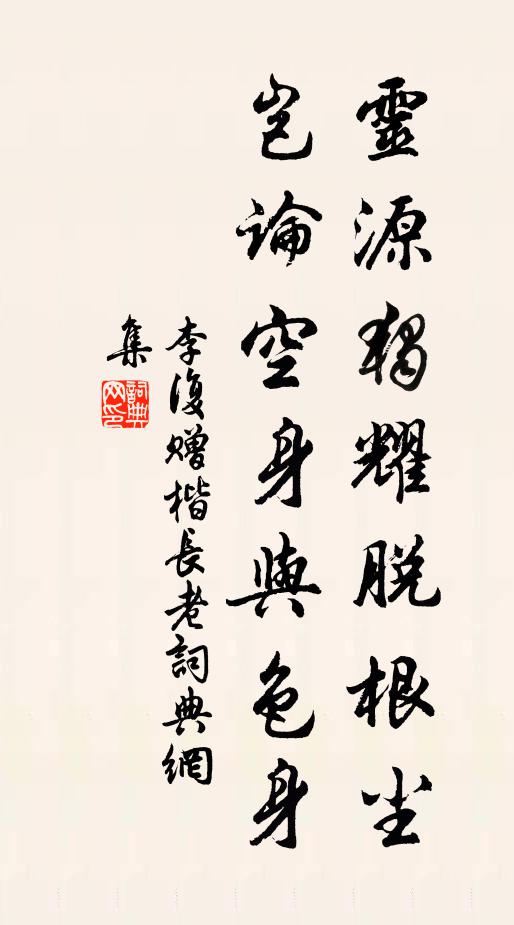 靈源獨耀脫根尘
岂論空身與色身
李復赠楷長老詞典網
集
詞典網印